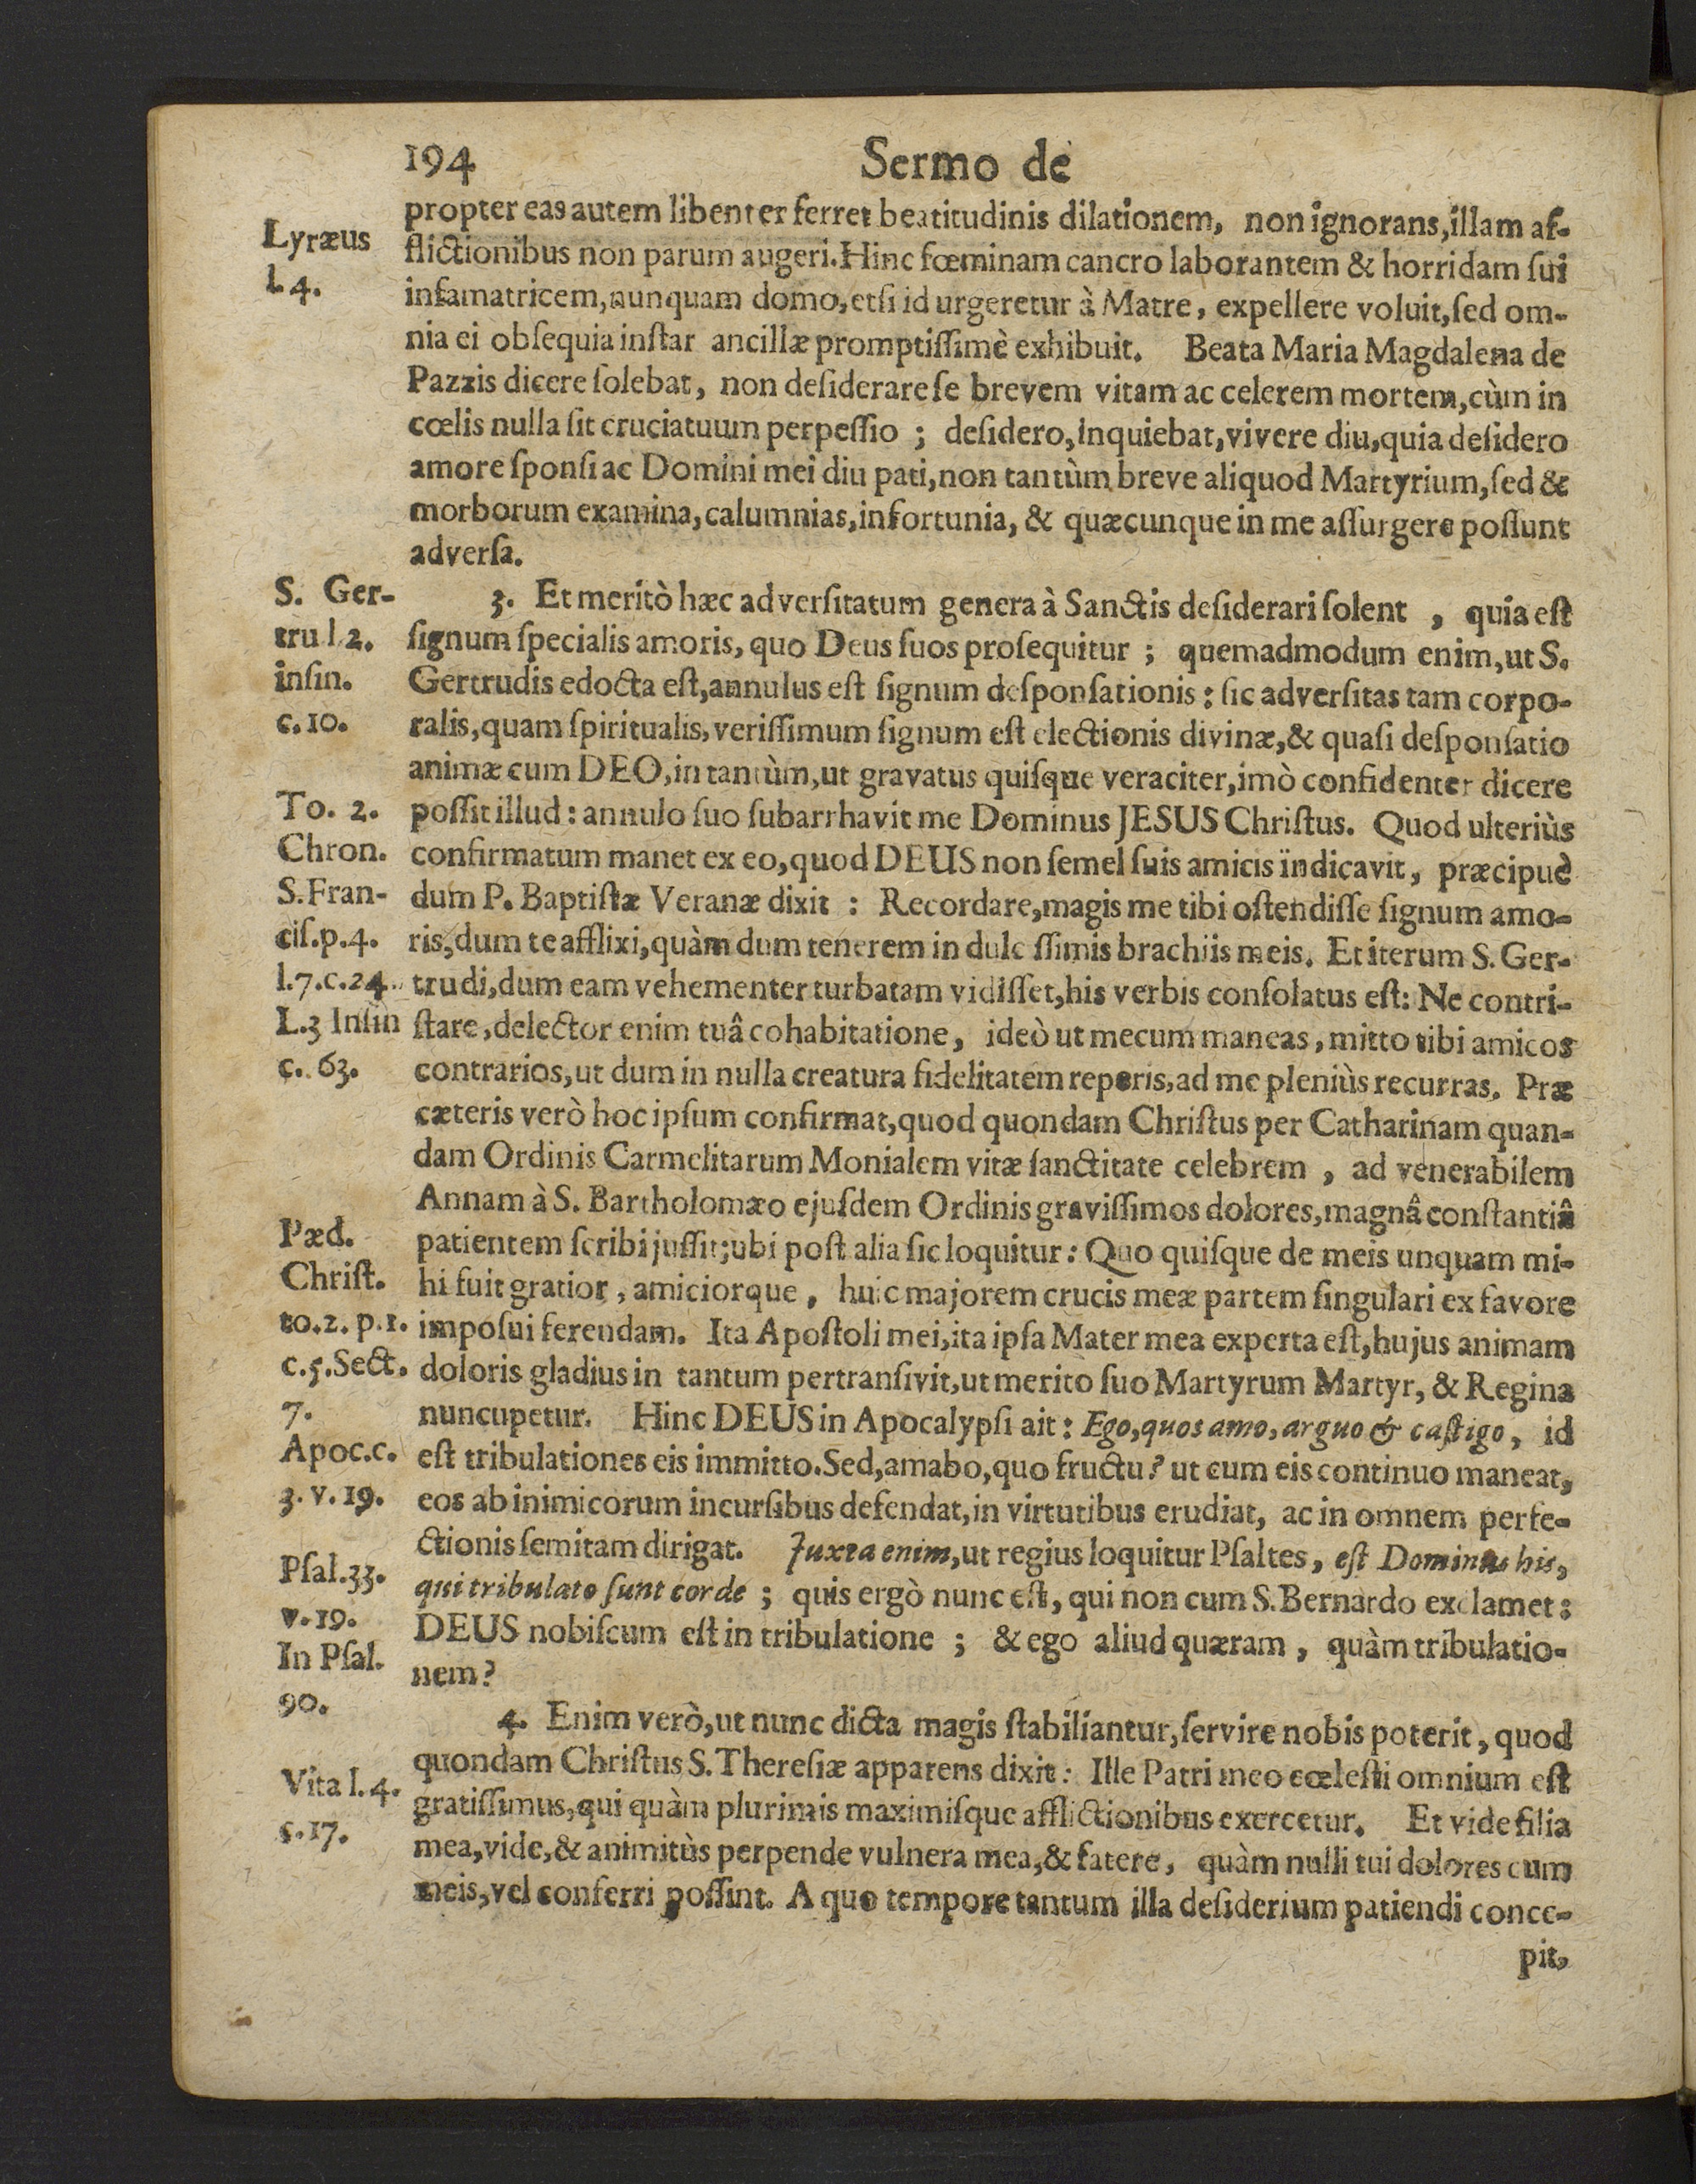 194 Sermo de
propter eas autem libenter ferret beatitudinis dilationem, non ignorans, illam af-
Lyræus
flictionibus non parum augeri. Hinc fœminam cancro laborantem & horridam ſui
l. 4.
infamatricem, nunquam domo, etſi id urgeretur à Matre, expellere voluit, ſed om-
nia ei obſequia inſtar ancillæ promptiſſimè exhibuit. Beata Maria Magdalena de
Pazzis dicere ſolebat, non deſiderare ſe brevem vitam ac celerem mortem, cùm in
cœlis nulla ſit cruciatuum perpeſſio ; deſidero, inquiebat, vivere diu, quia deſidero
amore ſponſi ac Domini mei diu pati, non tantùm breve aliquod Martyrium, ſed &
morborum examina, calumnias, infortunia, & quæcunque in me aſſurgere poſſunt
adverſa.
S. Ger-
3. Et meritò hæc adverſitatum genera à Sanctis deſiderari ſolent , quia eſt
tru l 2.
ſignum ſpecialis amoris, quo Deus ſuos proſequitur ; quemadmodum enim, ut S.
inſin.
Gertrudis edocta eſt, annulus eſt ſignum deſponſationis : ſic adverſitas tam corpo-
c. 10.
ralis, quam ſpiritualis, veriſſimum ſignum eſt electionis divinæ, & quaſi deſponſatio
animæ cum DEO, in tantùm, ut gravatus quiſque veraciter, imò confidenter dicere
To. 2.
poſſit illud : annulo ſuo ſubarrhavit me Dominus JESUS Chriſtus. Quod ulteriùs
Chron.
confirmatum manet ex eo, quod DEUS non ſemel ſuis amicis indicavit, præcipuè
S. Fran-
dum P. Baptiſtæ Veranæ dixit : Recordare, magis me tibi oſtendiſſe ſignum amo-
ciſ. p. 4.
ris, dum te afflixi, quàm dum tenerem in dulc ſſimis brachiis meis. Et iterum S. Ger-
l. 7. c. 24.
trudi, dum eam vehementer turbatam vidiſſet, his verbis conſolatus eſt: Ne contri-
L. 3 Inſin
ſtare, delector enim tuâ cohabitatione, ideò ut mecum maneas, mitto tibi amicos
c. 63.
contrarios, ut dum in nulla creatura fidelitatem reperis, ad me pleniùs recurras. Præ
cæteris verò hoc ipſum confirmat, quod quondam Chriſtus per Catharinam quan-
dam Ordinis Carmelitarum Monialem vitæ ſanctitate celebrem , ad venerabilem
Annam à S. Bartholomæo ejuſdem Ordinis graviſſimos dolores, magnâ conſtantiâ
Pæd.
patientem ſcribi juſſit; ubi poſt alia ſic loquitur : Quo quiſque de meis unquam mi-
Chriſt.
hi fuit gratior, amiciorque , huic majorem crucis meæ partem ſingulari ex favore
to. 2. p. 1.
impoſui ferendam. Ita Apoſtoli mei, ita ipſa Mater mea experta eſt, hujus animam
c. 5. Sect.
doloris gladius in tantum pertranſivit, ut merito ſuo Martyrum Martyr, & Regina
7.
nuncupetur. Hinc DEUS in Apocalypſi ait : Ego, quos amo, arguo & caſtigo, id
Apoc. c.
eſt tribulationes eis immitto. Sed, amabo, quo fructu? ut cum eis continuo maneat,
3. v. 19.
eos ab inimicorum incurſibus defendat, in virtutibus erudiat, ac in omnem perfe-
ctionis ſemitam dirigat. Juxta enim, ut regius loquitur Pſaltes, eſt Dominus his,
Pſal. 33.
qui tribulato ſunt corde ; quis ergò nunc eſt, qui non cum S. Bernardo exclamet :
v. 19.
DEUS nobiſcum eſt in tribulatione ; & ego aliud quæram , quàm tribulatio-
In Pſal.
nem?
90.
4. Enim verò, ut nunc dicta magis ſtabiliantur, ſervire nobis poterit, quod
quondam Chriſtus S. Thereſiæ apparens dixit : Ille Patri meo cœleſti omnium eſt
Vita l. 4.
gratiſſimus, qui quàm plurimis maximiſque afflictionibus exercetur. Et vide filia
c. 17.
mea, vide, & animitùs perpende vulnera mea, & fatere, quàm nulli tui dolores cum
meis, vel conferri poſſint. A quo tempore tantum illa deſiderium patiendi conce-
pit,